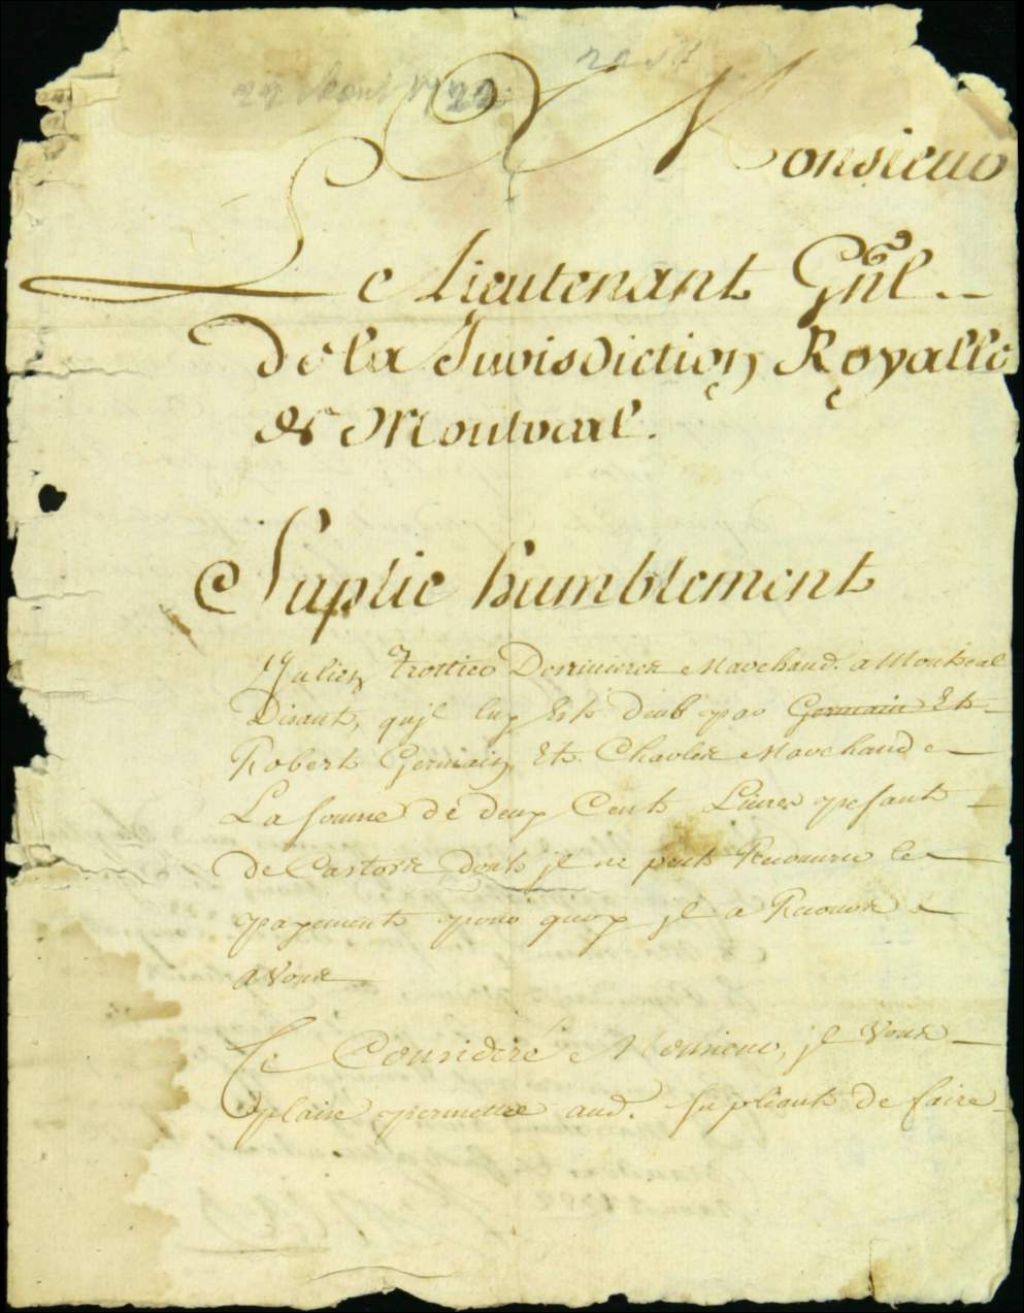 A Monsieur
Le Lieutenant Gñl
de la Jurisdiction Royalle
de Montreal.
Suplie humblement
Julien Trottier Desrivieres Marchand a Montreal
Disant, qu'jl luy Est deub par Germain Et
Robert Germain Et Charles Marchand
La somme de deux Cent Livres pesant
de Castors dont jl ne peut Recouvrer le
payement pour quoy jl a Recours
a Vous
Ce Consideré Monsieur, jl Vous
plaise permettre aud. supliant de faire